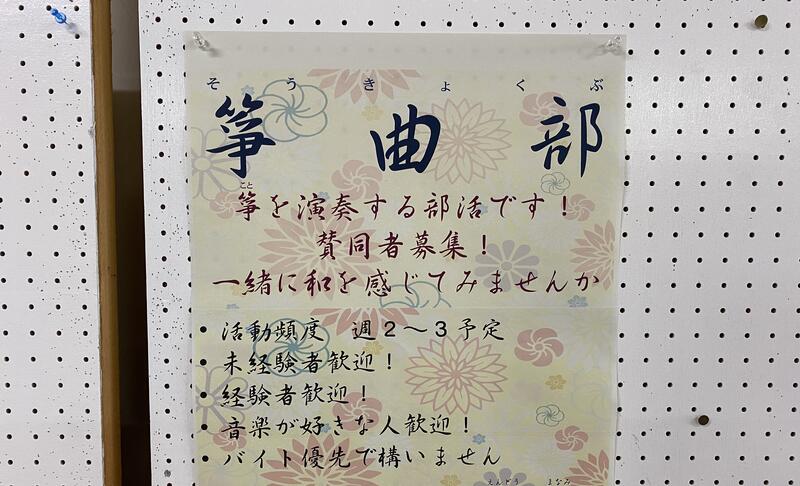 そうきょくぶ
箏曲部
こと
箏を演奏する部活です！
賛同者募集！
一緒に和を感じてみませんか
・活動頻度　週２～３予定
・未経験者歓迎！
・経験者歓迎！
・音楽が好きな人歓迎！
・バイト優先で構いません
えんどう　まなみ